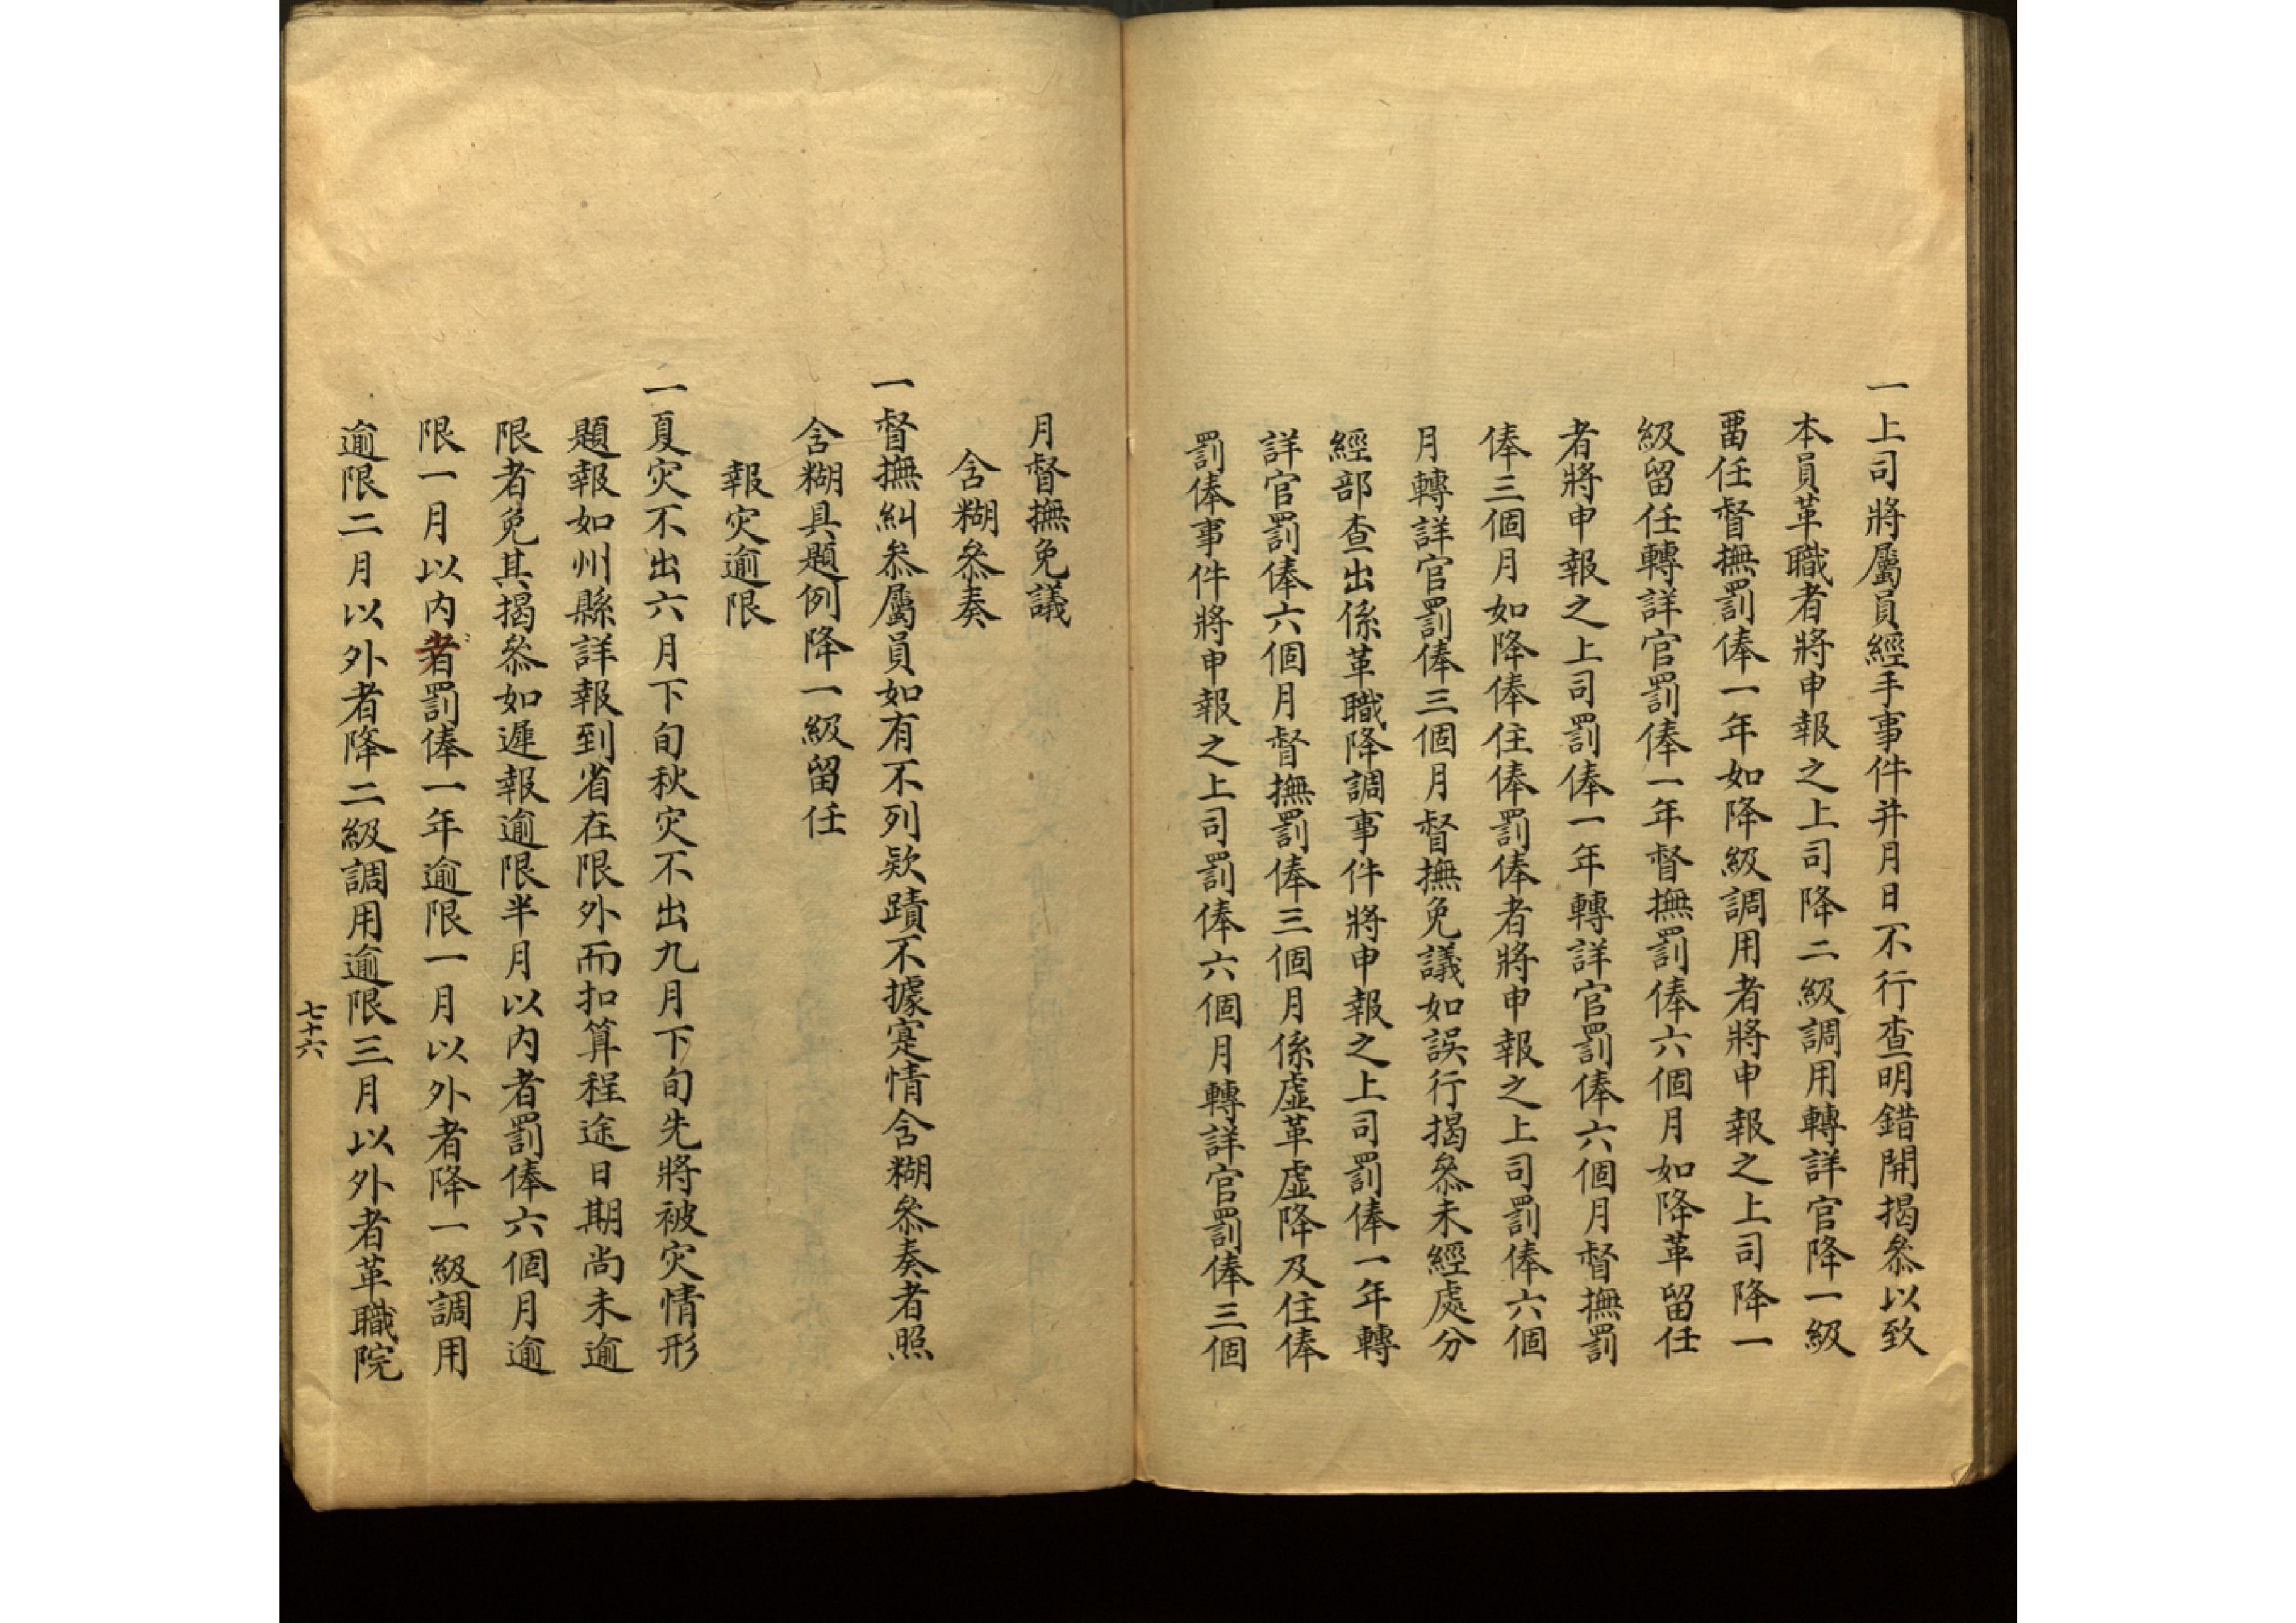 一上司將屬員經手事件并月日不行查明錯開揭叅以致
本員革職者將申報之上司降二級調用轉詳官降一級
畱任督撫罰俸一年如降級調用者將申報之上司降一
級留任轉詳官罰俸一年督撫罰俸六個月如降革留任
者將申報之上司罰俸一年轉詳官罰俸六個月督撫罰
俸三個月如降俸住俸罰俸者將申報之上司罰俸六個
月轉詳官罰俸三個月督撫免議如誤行揭叅未經處分
經部查出係革職降調事件將申報之上司罰俸一年轉
詳官罰俸六個月督撫罰俸三個月係虛革虛降及住俸
罰俸事件將申報之上司罰俸六個月轉詳官罰俸三個
月督撫免議
含糊叅奏
一督撫糾叅屬員如有不列欵蹟不據寔情含糊叅奏者照
含糊具題例降一級留任
報灾逾限
一夏灾不出六月下旬秋灾不出九月下旬先將被灾情形
題報如州縣詳報到省在限外而扣算程途日期尚未逾
限者免其揭叅如遲報逾限半月以內者罰俸六個月逾
限一月以內者罰俸一年逾限一月以外者降一級調用
逾限二月以外者降二級調用逾限三月以外者革職院
七十六